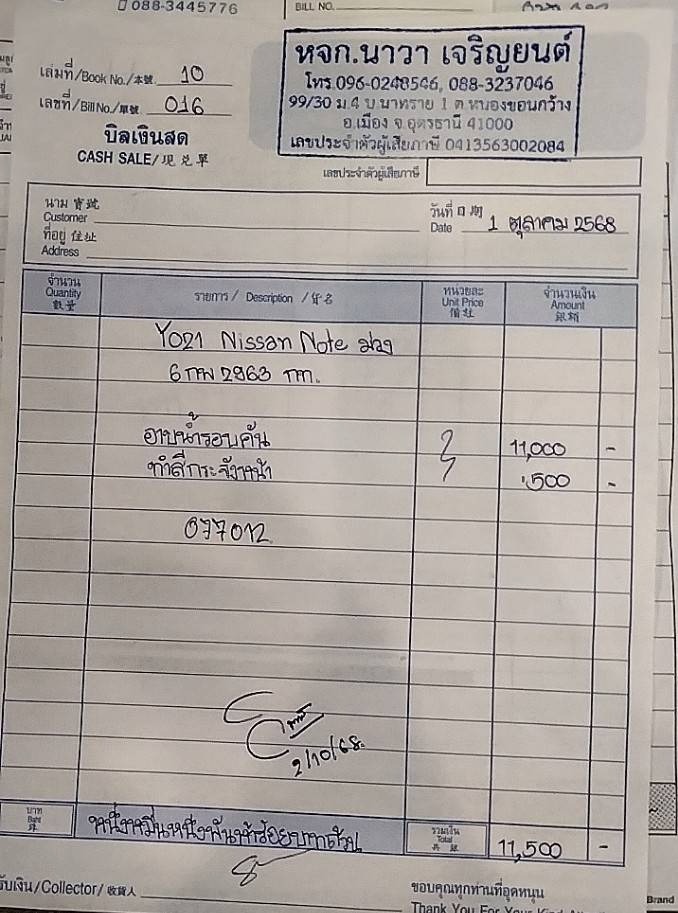 088-3445776
BILL NO.
เล่มที่/Book No./本號 10
เลขที่/Bill No./單號 016
บิลเงินสด
CASH SALE/現兌單
หจก.นาวา เจริญยนต์
โทร.096-0248546, 088-3237046
99/30 ม.4 บ.นาทราย 1 ต.หนองขอนกว้าง
อ.เมือง จ.อุดรธานี 41000
เลขประจำตัวผู้เสียภาษี 0413563002084
เลขประจำตัวผู้เสียภาษี
นาม 寶號
Customer
ที่อยู่ 住址
Address
วันที่ 日期
Date 1 ตุลาคม 2568
จำนวน
Quantity
數量
รายการ / Description / 貨名
หน่วยละ
Unit Price
價社
จำนวนเงิน
Amount
銀額
Y021 Nissan Note
6 กพ 2863 กท.
อาบน้ำรอบคัน 11,000 -
ทำสีกระจังหน้า 500 -
077012
2/10/68.
บาท
Baht
หนึ่งหมื่นหนึ่งพันห้าร้อยบาทถ้วน
รวมเงิน
Total
11,500 -
รับเงิน/Collector/收貨人
ขอบคุณทุกท่านที่อุดหนุน
Thank You For Your Kind
Brand